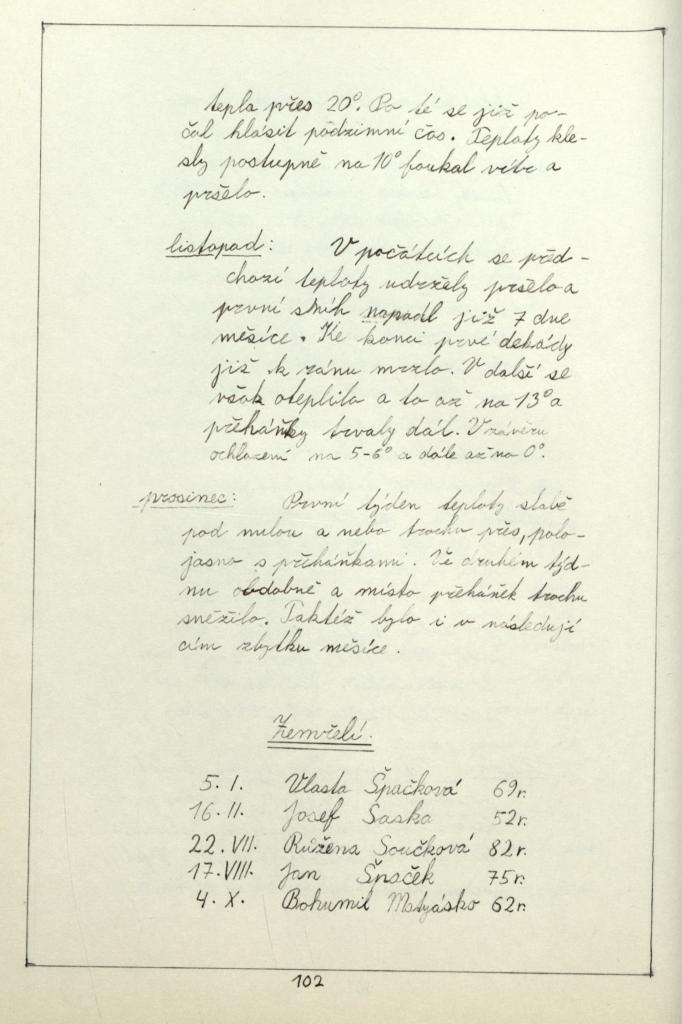 tepla přes 20°. Po té se již po-
čal hlásit podzimní čas. Teploty kle-
sly postupně na 10° foukal vítr a
pršelo.
listopad: V počátcích se před-
chozí teploty udržely pršelo a
první sníh napadl již 7 dne
měsíce. Ke konci prvé dekády
již k ránu mrzlo. V další se
však oteplilo a to až na 13° a
přeháňky trvaly dál. V závěru
ochlazení na 5-6° a dále až na 0°.
prosinec: První týden teploty slabě
pod nulou a nebo trochu přes, polo-
jasno s přeháňkami. Ve druhém týd-
nu obdobně a místo přeháněk trochu
sněžilo. Taktéž bylo i v následují
cím zbytku měsíce.
Zemřelí.
5. I. Vlasta Špačková 69r.
16. II. Josef Saska 52r.
22. VII. Růžena Součková 82r.
17. VIII. Jan Špaček 75r.
4. X. Bohumil Matyásko 62r.
102